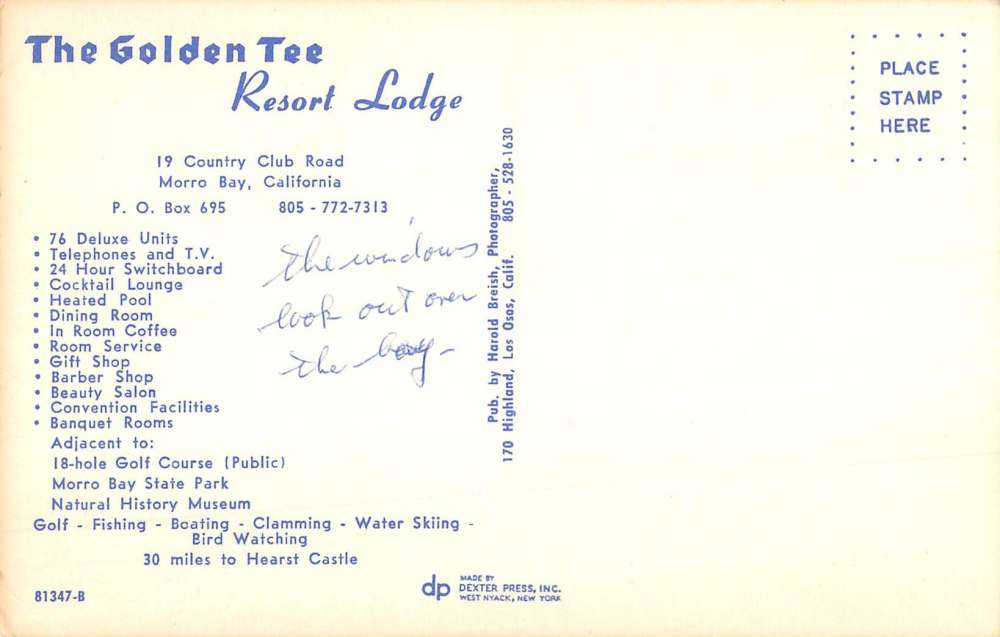 The Golden Tee
Resort Lodge
19 Country Club Road
Morro Bay, California
P. O. Box 695 805 - 772-7313
• 76 Deluxe Units
• Telephones and T.V.
• 24 Hour Switchboard
• Cocktail Lounge
• Heated Pool
• Dining Room
• In Room Coffee
• Room Service
• Gift Shop
• Barber Shop
• Beauty Salon
• Convention Facilities
• Banquet Rooms
Adjacent to:
18-hole Golf Course (Public)
Morro Bay State Park
Natural History Museum
Golf - Fishing - Boating - Clamming - Water Skiing -
Bird Watching
30 miles to Hearst Castle
81347-B
the windows
look out over
the bay -
Pub. by Harold Breish, Photographer,
170 Highland, Los Osos, Calif. 805 - 528-1630
dp
MADE BY
DEXTER PRESS, INC.
WEST NYACK, NEW YORK
PLACE
STAMP
HERE